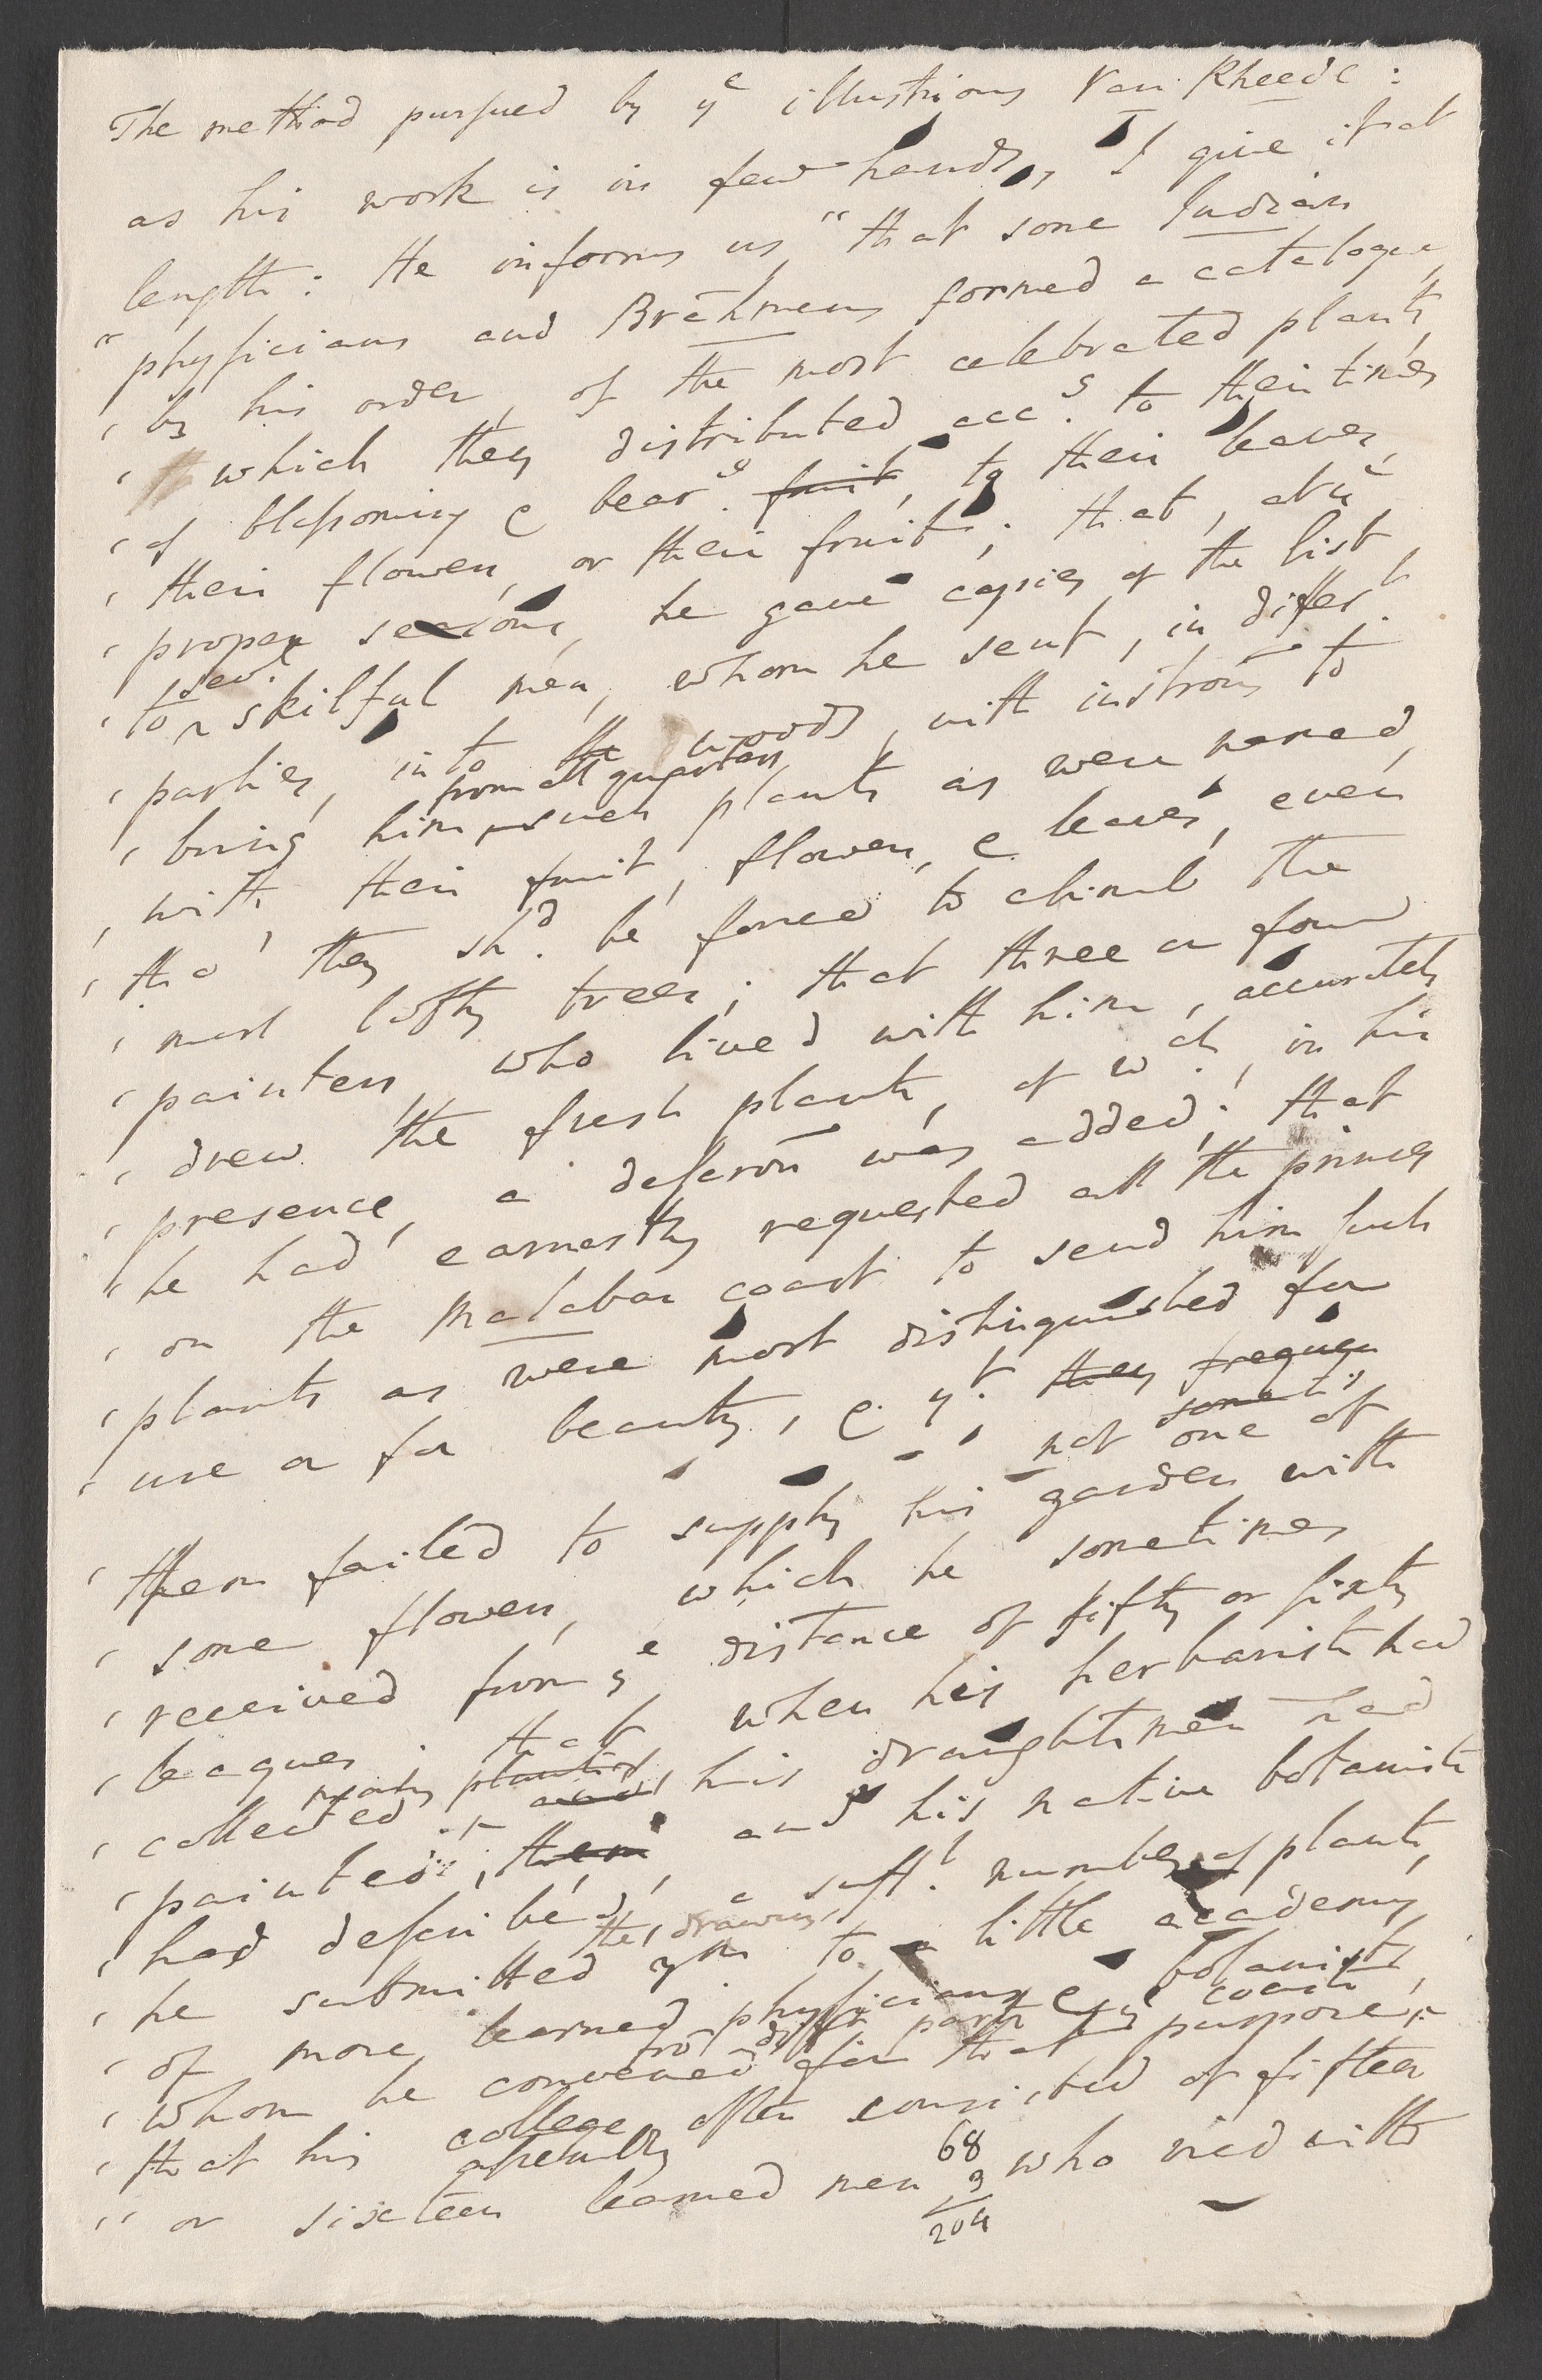 The method pursued by yᵉ illustrious Van Rheede:
as his work is in few hands, I give it at
length: He informs us, "that some Indian
" physicians and Brahmens formed a catalogue,
' by his order, of the most celebrated plants,
' which they distributed accᵍ. to their times
' of blossoming & bearᵍ. fruit, to their leaves,
' their flowers, or their fruit; that, at yᵉ
' proper seasons, he gave copies of the list
sev.ˡ
' to ^ skilful men, whom he sent, in differᵗ.
' parties, into the woods, with instrons to
from all quarters
' bring him ^ such plants as were named,
' with their fruit, flowers, & leaves, even
' tho' they shᵈ. be forced to climb the
' most lofty trees; that three or four
' painters, who lived with him, accurately
' drew the fresh plants, of wᶜʰ., in his
' presence, a descron was added; that
' he had earnestly requested all the princes
' on the Malabar coast to send him such
' plants as were most distinguished for
' use or for beauty, & yᵗ. they frequen
not one of
' them failed to supply his garden with
' some flowers, which he sometimes
' received from yᵉ distance of fifty or sixty
' leagues; that when his herbarists had
' collected, his draughtsmen had
' painted, them, and his native botanists
' had described, a suffᵗ. number of plants,
the drawings
' he submitted ym to a little academy
' of more learned physicians & botanists,
' whom he convened for that purpose;
college
' that his assembly often consisted of fifteen
'' or sixteen learned men, who vied with
68
3
204